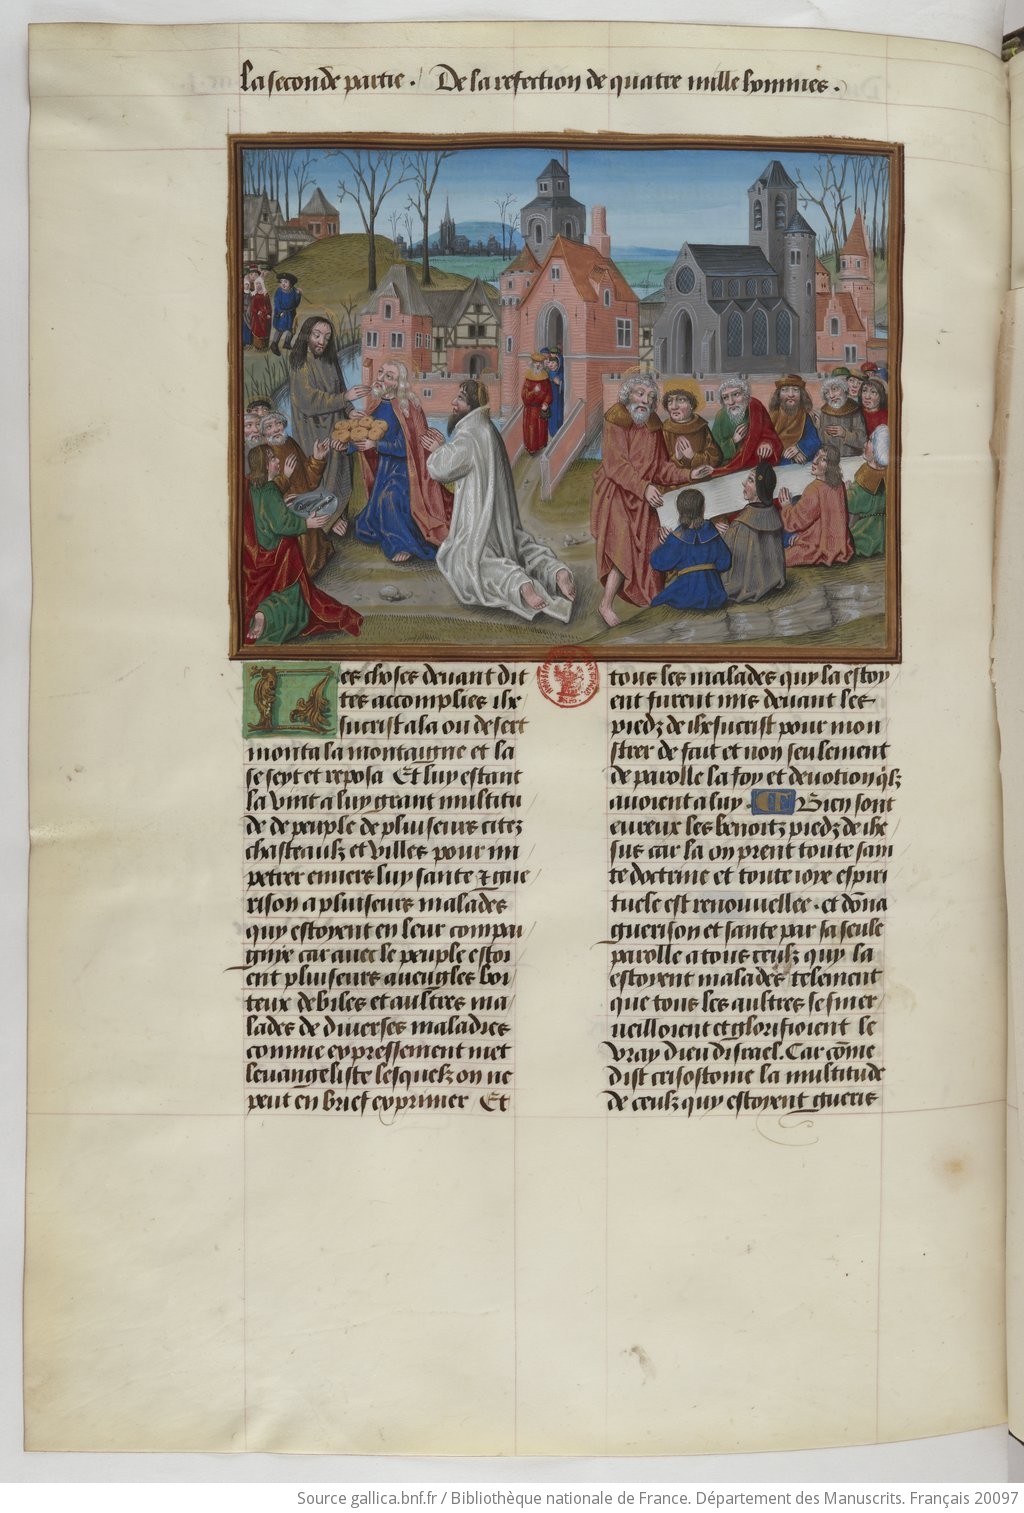 La seconde partie. De la refection de quatre mille hommes.
Les choses devant dit
tes accomplies ihe
sucrist ala ou desert
monta la montaigne et la
se seyt et reposa Et luy estant
la vint a luy grant multitu
de de peuple de pluiseurs citez
chasteaulz et villes pour im
petrer envers luy sante & gue
rison a pluiseurs malades
quy estoyent en leur compai
gnye car avec le peuple estoi
ent pluiseurs aueugles boi
teux debiles et aultres ma
lades de diverses maladies
comme expressement met
levangeliste lesquelz on ne
peut en brief exprimer Et
tous les malades quy la estoy
ent furent mis devant les
piedz de ihesucrist pour mon
strer de fait et non seulement
de parolle la foy et devotion qlz
avoient a luy. Bien sont
eureux les benoitz piedz de ihe
sus car la on prent toute sain
te doctrine et toute ioye espiri
tuele est renouvellee. et dōna
guerison et sante par sa seule
parolle a tous ceulz quy la
estoyent malades telement
que tous les aultres se smer
veilloient et glorifioient le
vray dieu disrael. Car cōme
dist crisostome la multitude
de ceulz quy estoyent gueris
Source gallica.bnf.fr / Bibliothèque nationale de France. Département des Manuscrits. Français 20097